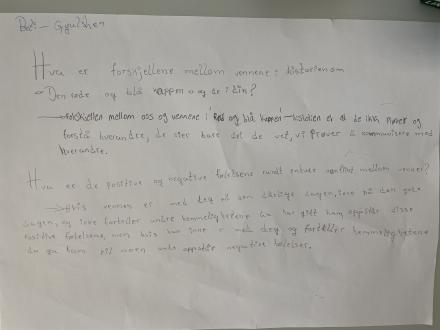 Hva er forskjellene mellom vennene i historien om
Den røde og blå kappen og de i din?
→ Forskjellen mellom oss og vennene i rød og blå er at de ikke prøver og
forstå hverandre, de sier bare det de vet, vi prøver å kommunisere med
hverandre.
Hva er de positive og negative følelsene rundt mellom venner?
→ Hvis vennen er med deg på dårlige dagen, ikke på den gode
dagen, og ikke forteller andre hemmelighetene du har gitt ham oppstår disse
positive følelsene, men hvis han ikke er med deg og forteller hemmelighetene
du ga ham til noen andre oppstår negative følelser.